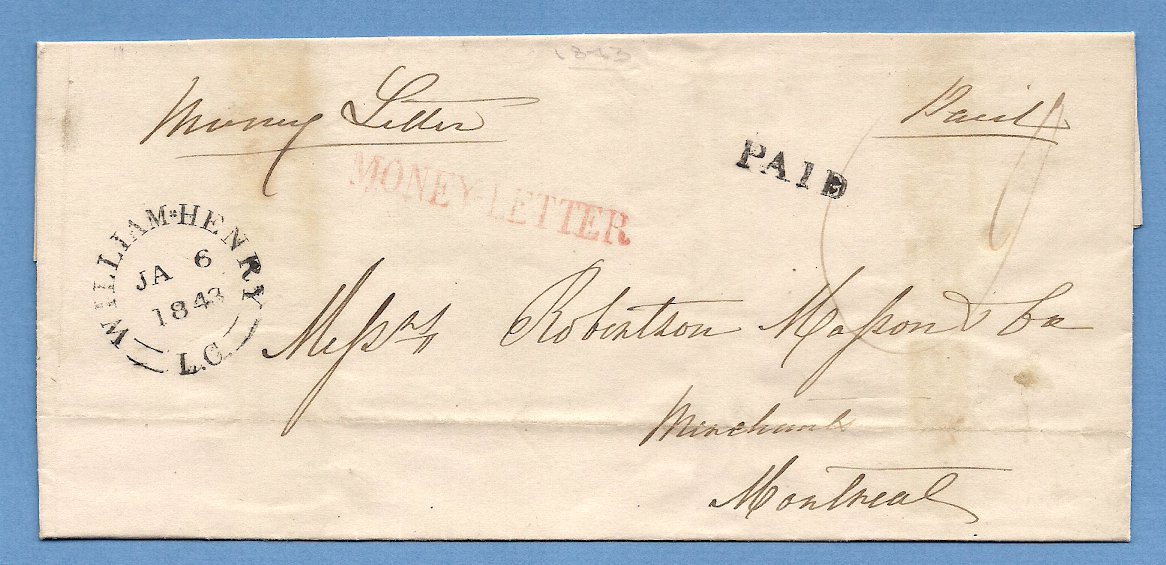 1843
Money Letter
Paid
MONEY-LETTER
PAID
WILLIAM*HENRY
JA 6
1843
L.C.
Messrs Robertson Masson & Co
Merchants
Montreal